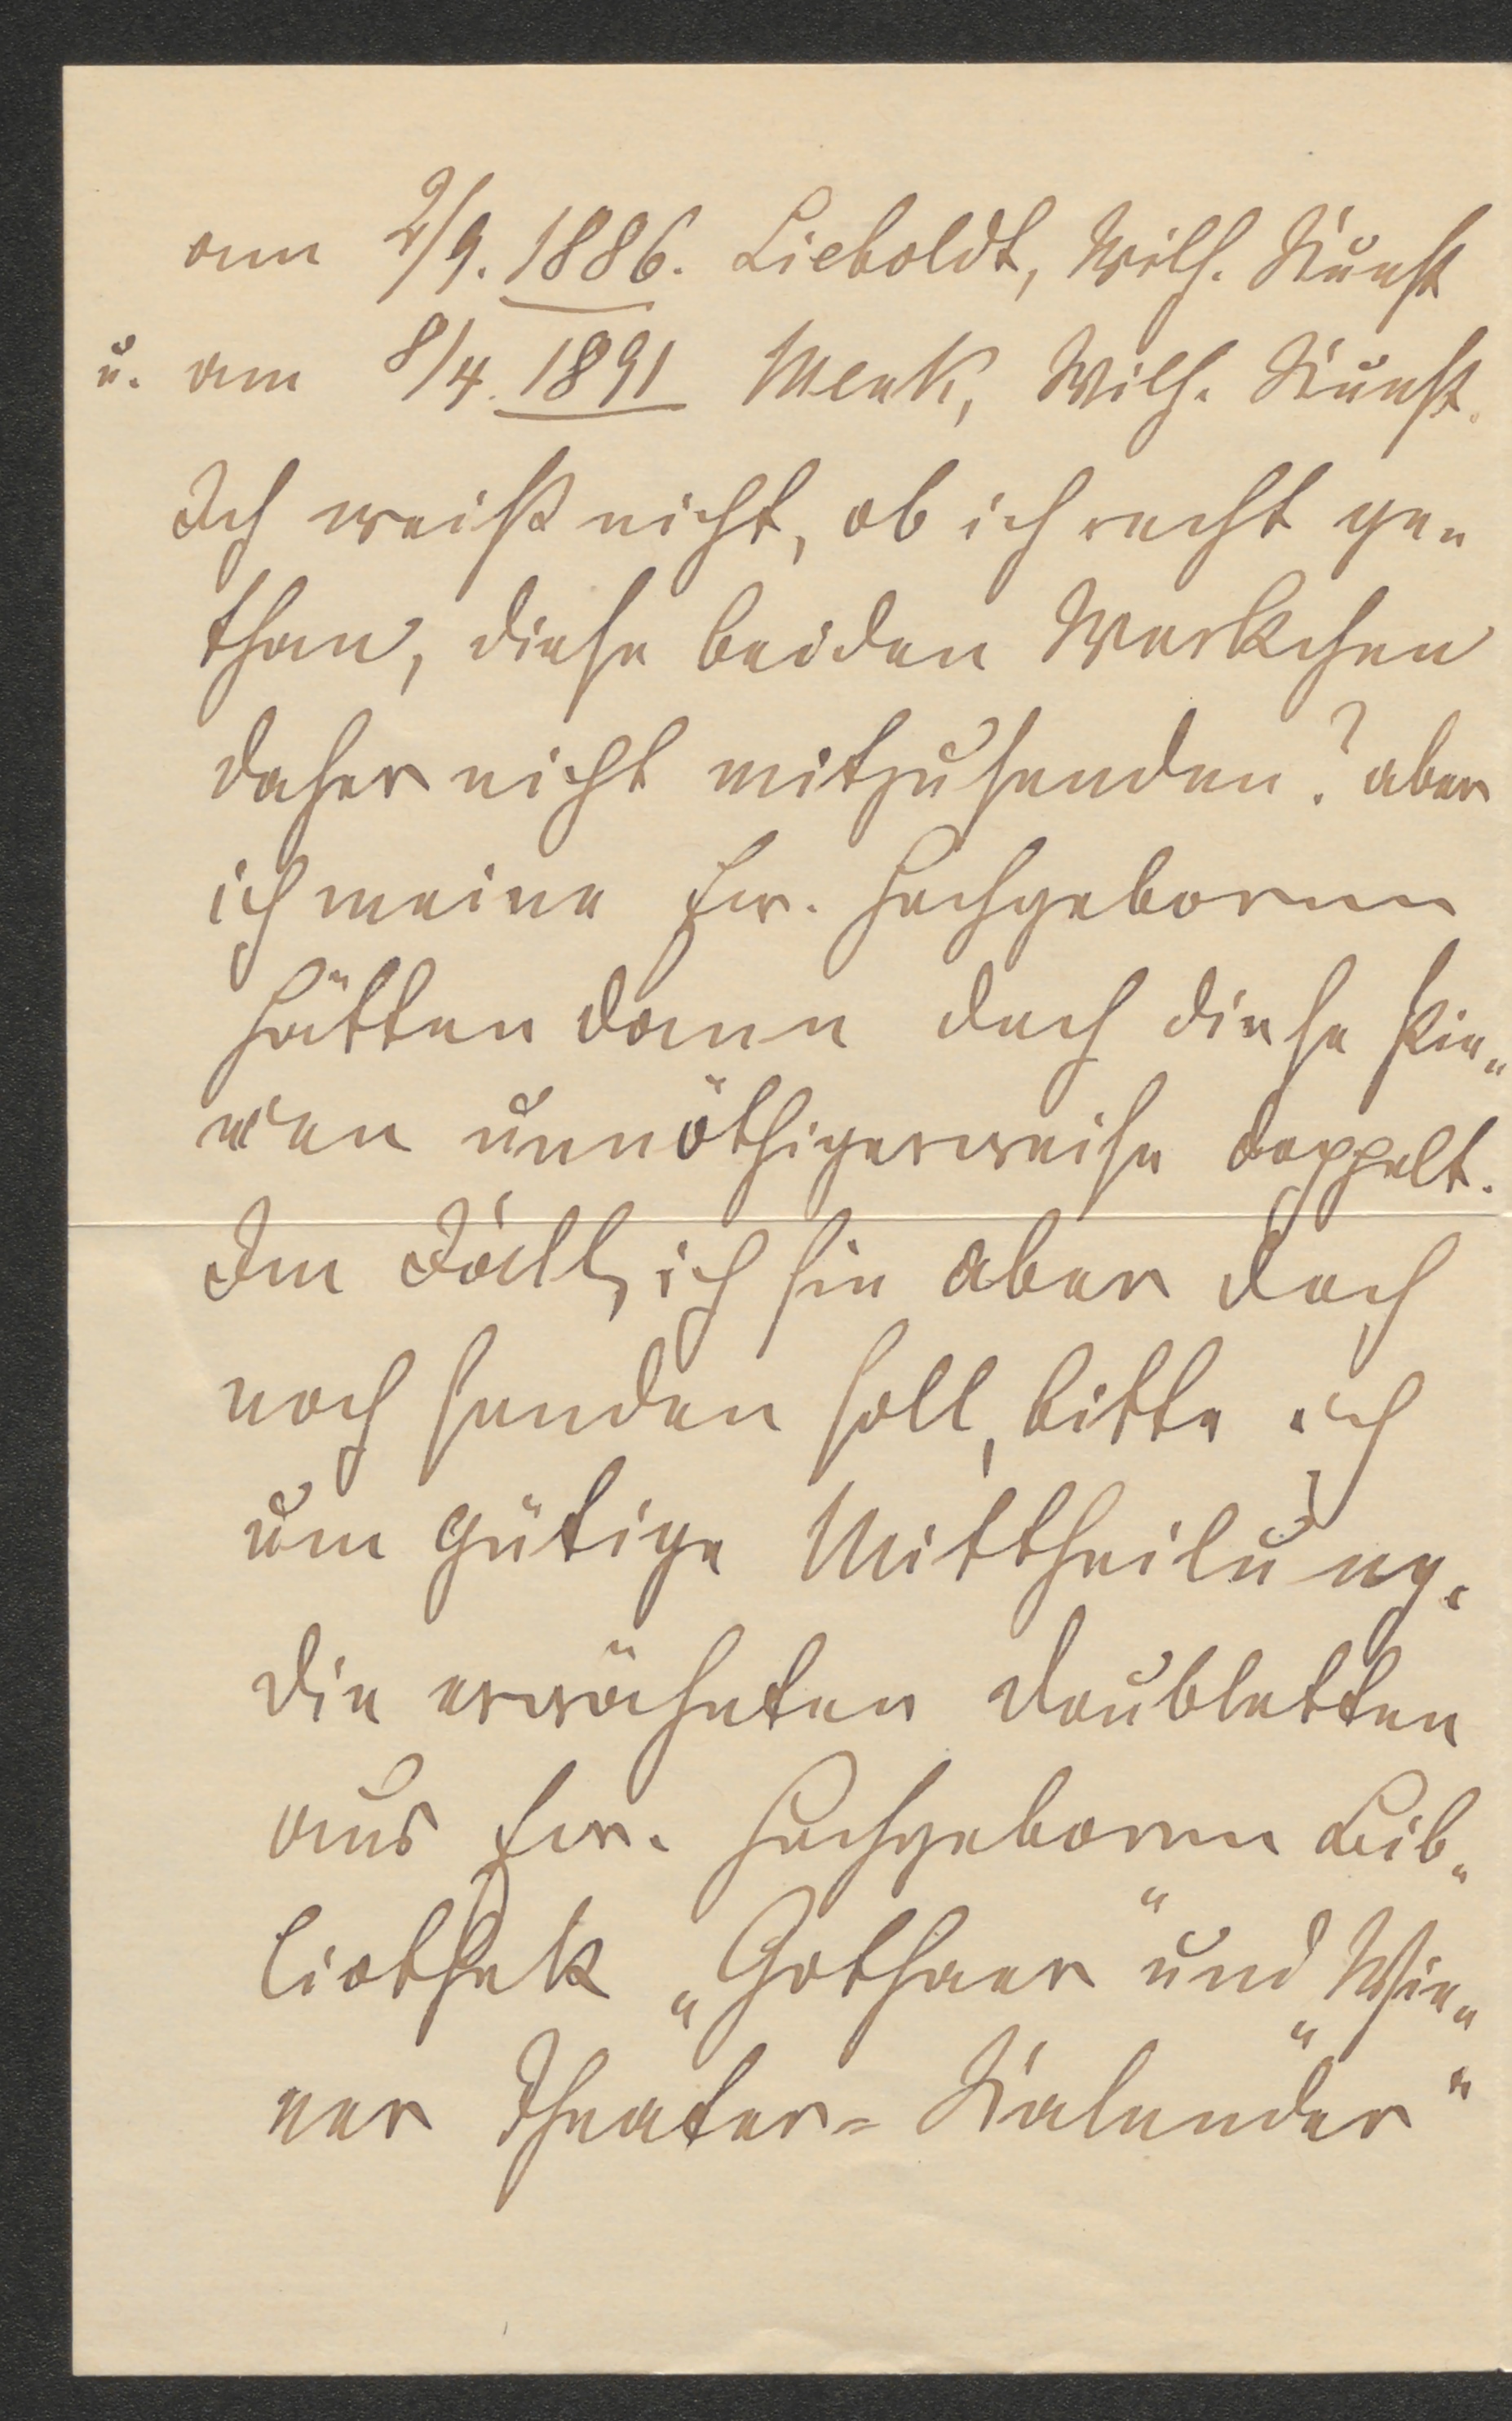 am 2/9. 1886. Lieboldt, Wilh. Kunst
u. am 8/4. 1891 Menk, Wilh. Kunst.
Ich weiß nicht, ob ich recht ge„
than, diese beiden Werkchen
daher nicht mitzusenden? aber
ich meine Ew. Hochgeboren
hätten dann doch diese
unnöthigerweise doppelt.
Im Fall, ich sie aber doch
noch senden soll, bitte ich
um gütige Mittheilung.
Die erwähnten Doubletten
aus Ew. Hochgeboren Bib„
liothek „Gothaer“ und „Wie„
ner Theater-Kalender“